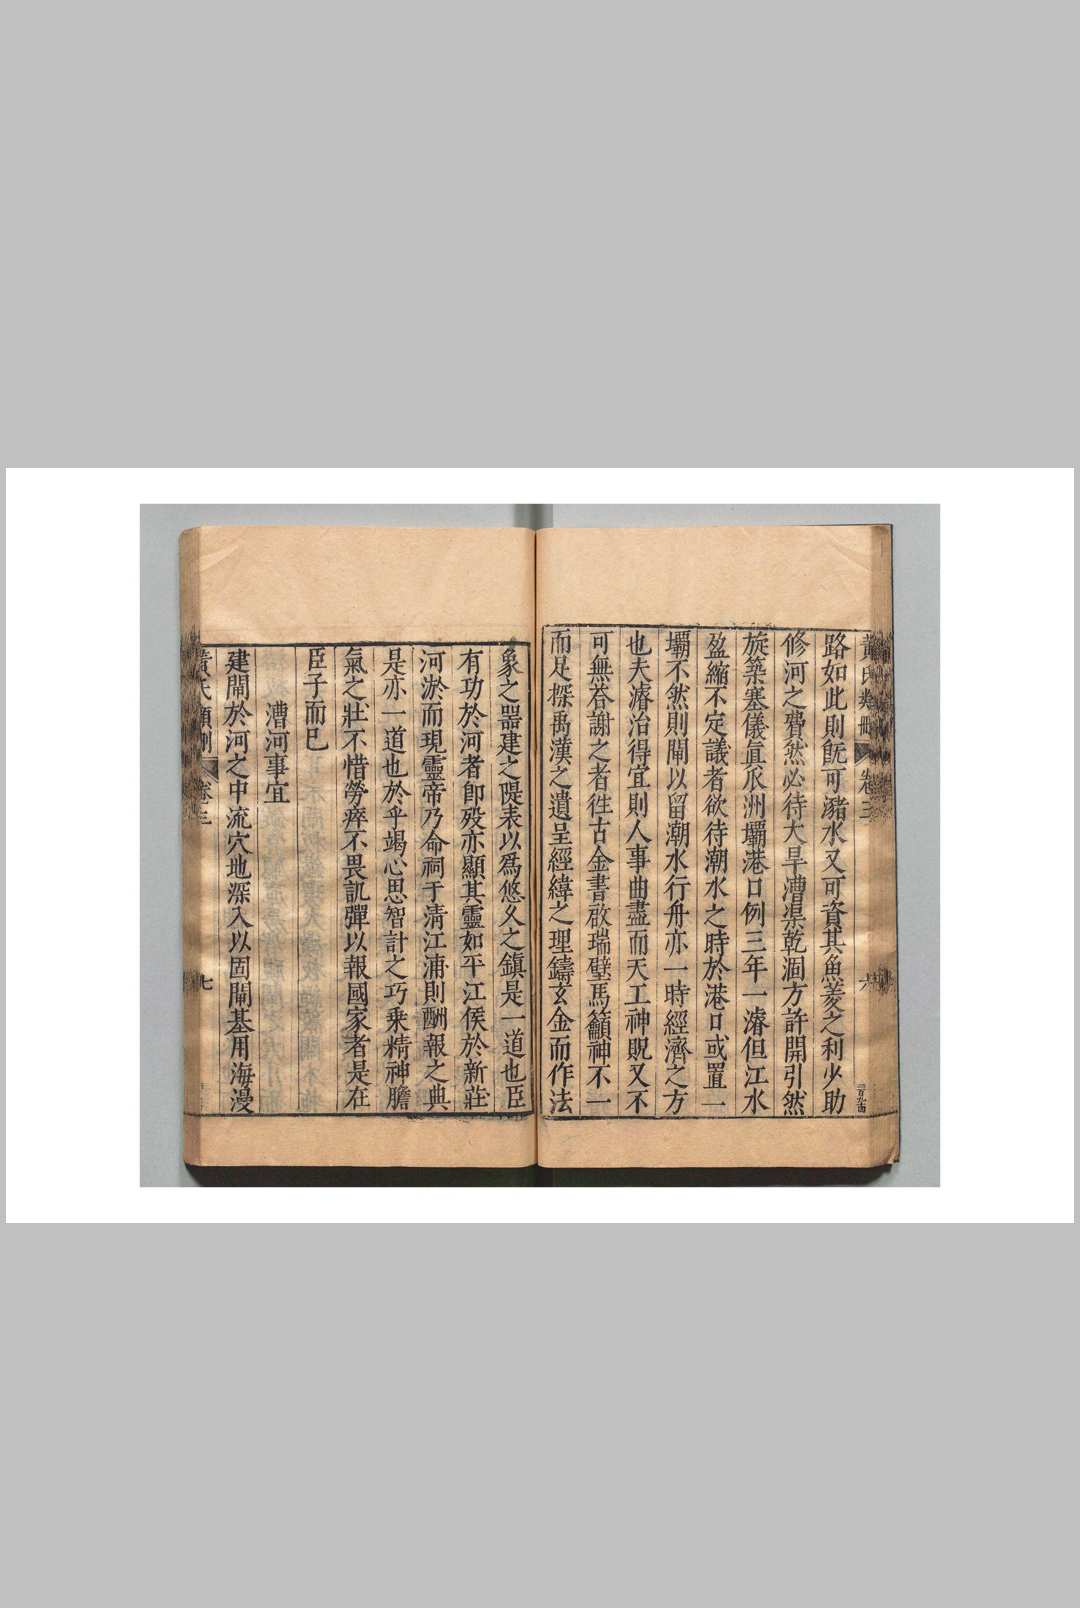 黃氏類冊 卷三 六
路如此則旣可瀦水又可資其魚菱之利少助
修河之費然必待大旱漕渠乾涸方許開引然
旋築塞儀眞瓜洲壩港口例三年一濬但江水
盈縮不定議者欲待潮水之時於港口或置一
壩不然則閘以留潮水行舟亦一時經濟之方
也夫濬治得宜則人事曲盡而天工神貺又不
可無荅謝之者徃古金書啟瑞璧馬籲神不一
而足探禹漢之遺呈經緯之理鑄玄金而作法
象之器建之隄表以爲悠久之鎮是一道也臣
有功於河者卽歿亦顯其靈如平江侯於新莊
河淤而現靈帝乃命祠于清江浦則酬報之典
是亦一道也於乎竭心思智計之巧乘精神膽
氣之壯不惜勞瘁不畏訕彈以報國家者是在
臣子而巳
漕河事宜
建閘於河之中流穴地深入以固閘基用海漫
黃氏類冊 卷三 七